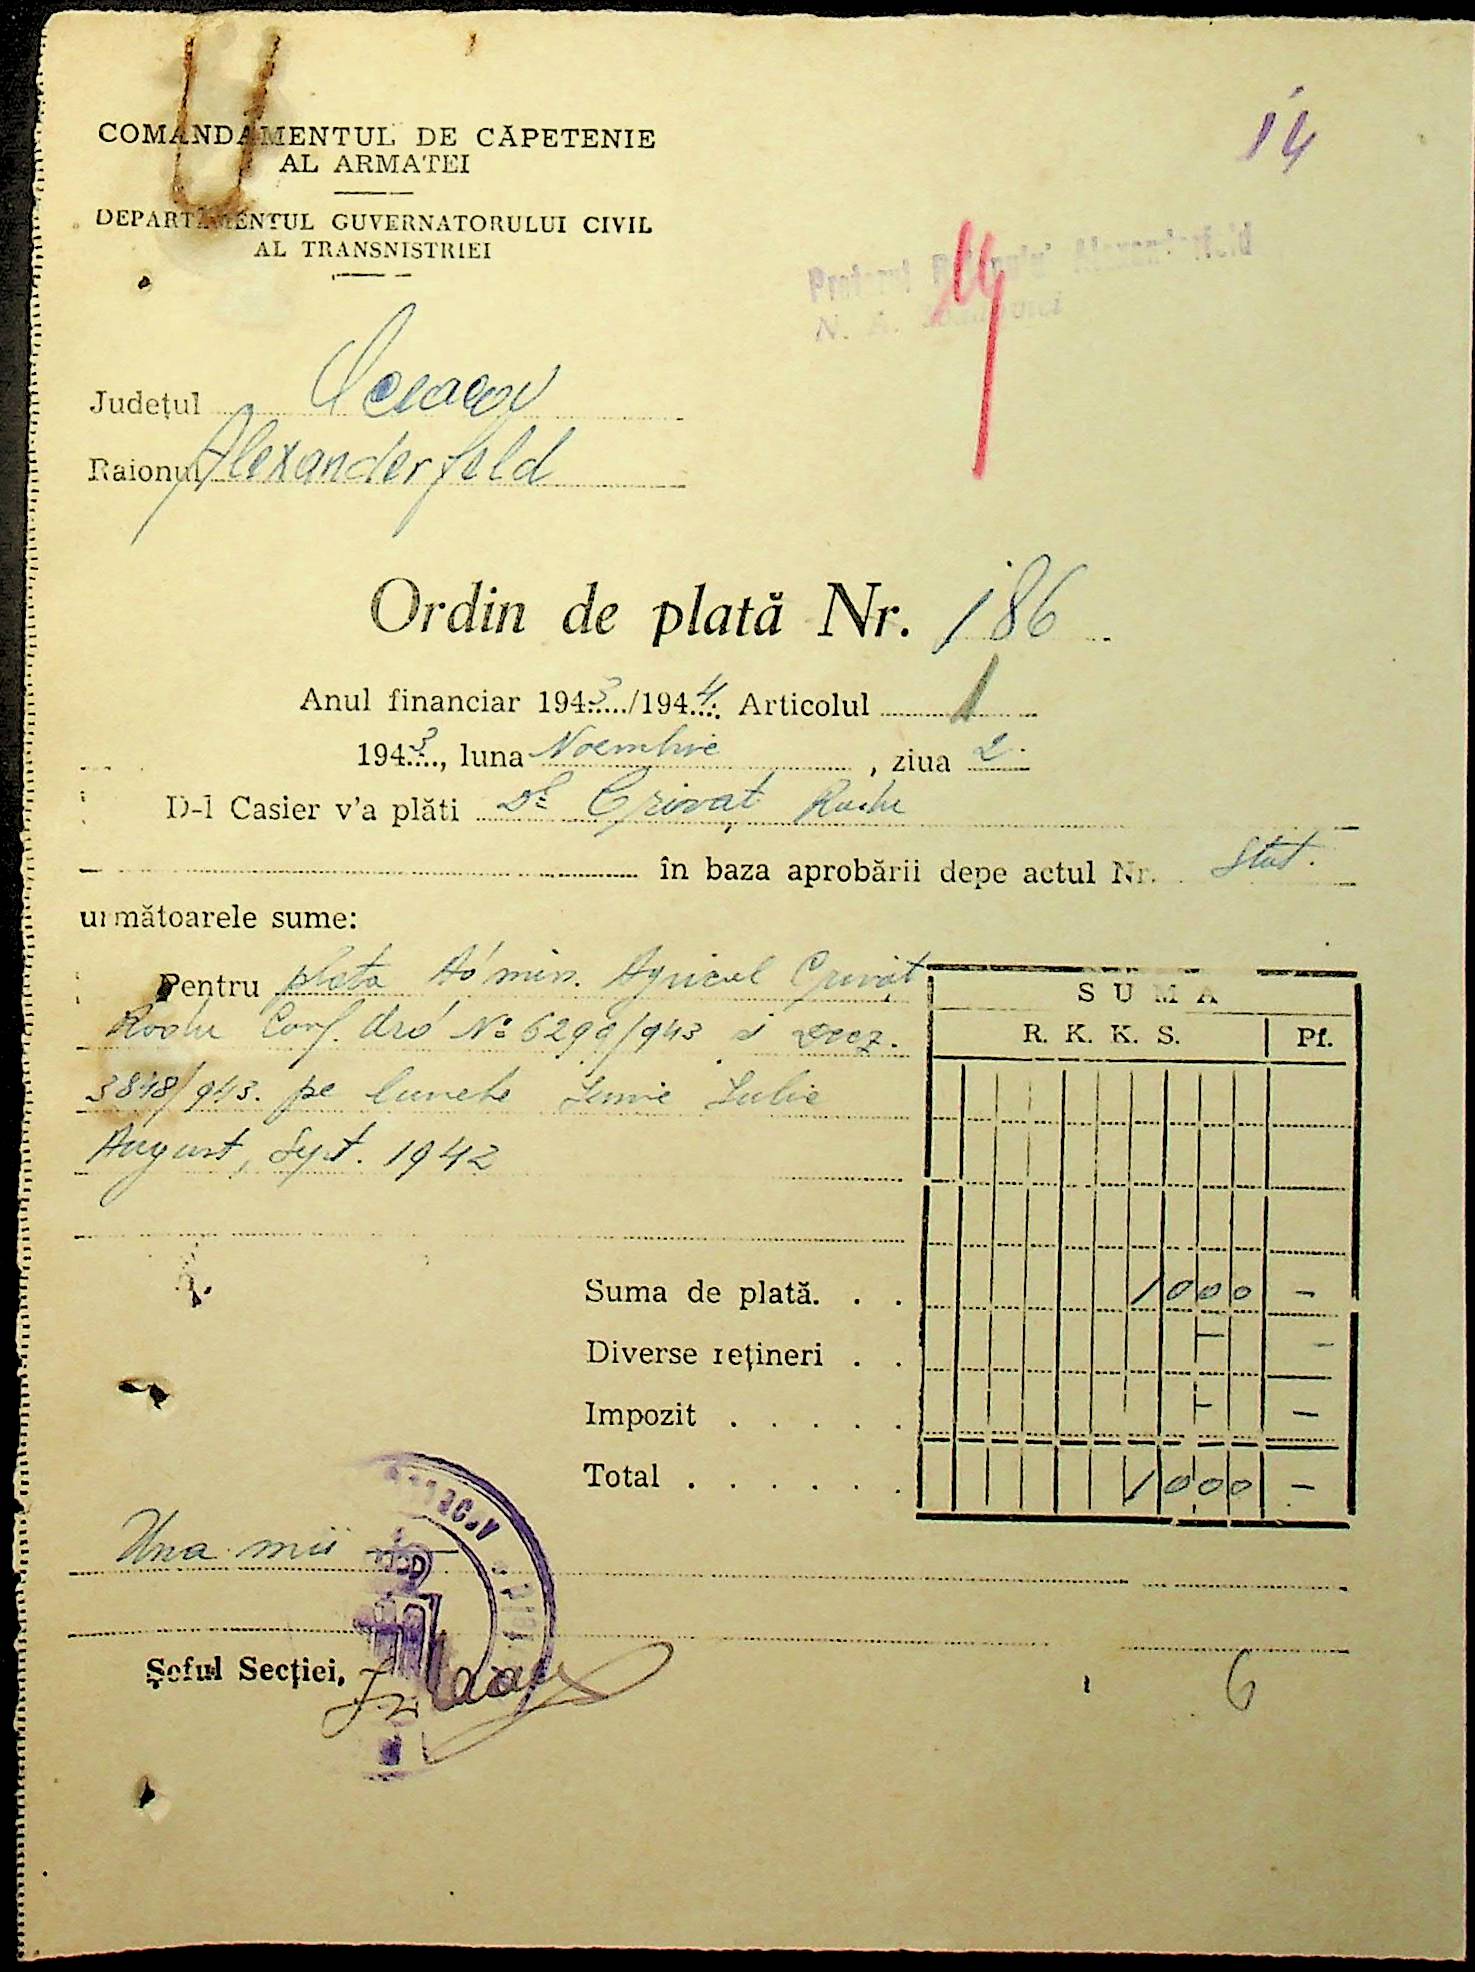 14
COMANDAMENTUL DE CĂPETENIE
AL ARMATEI
DEPARTAMENTUL GUVERNATORULUI CIVIL
AL TRANSNISTRIEI
Pretorul Raionului Alexanderfeld
N. A.
Județul Oceacov
Raionul Alexanderfeld
Ordin de plată Nr. 186
Anul financiar 1943/1944 Articolul 1
1943, luna Noembrie, ziua 2
D-l Casier v'a plăti Dl Crivăț
în baza aprobării depe actul Nr. Stat.
următoarele sume:
Pentru plata Admin. Agricol Crivăț
Conf. Ord No 6299/943 si Deciz.
3848/943. pe lunele Iunie Iulie
August, Sept. 1942
SUMA
R. K. K. S. Pf.
Suma de plată. . . 1000 -
Diverse rețineri . . - -
Impozit . . . . . - -
Total . . . . . . 1000 -
Una mii
Șeful Secției,
6